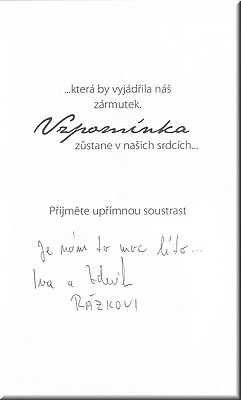 ...která by vyjádřila náš
zármutek.
Vzpomínka
zůstane v našich srdcích...
Přijměte upřímnou soustrast
Je nám to moc líto...
Iva a Zdeněk
RÁZKOVI